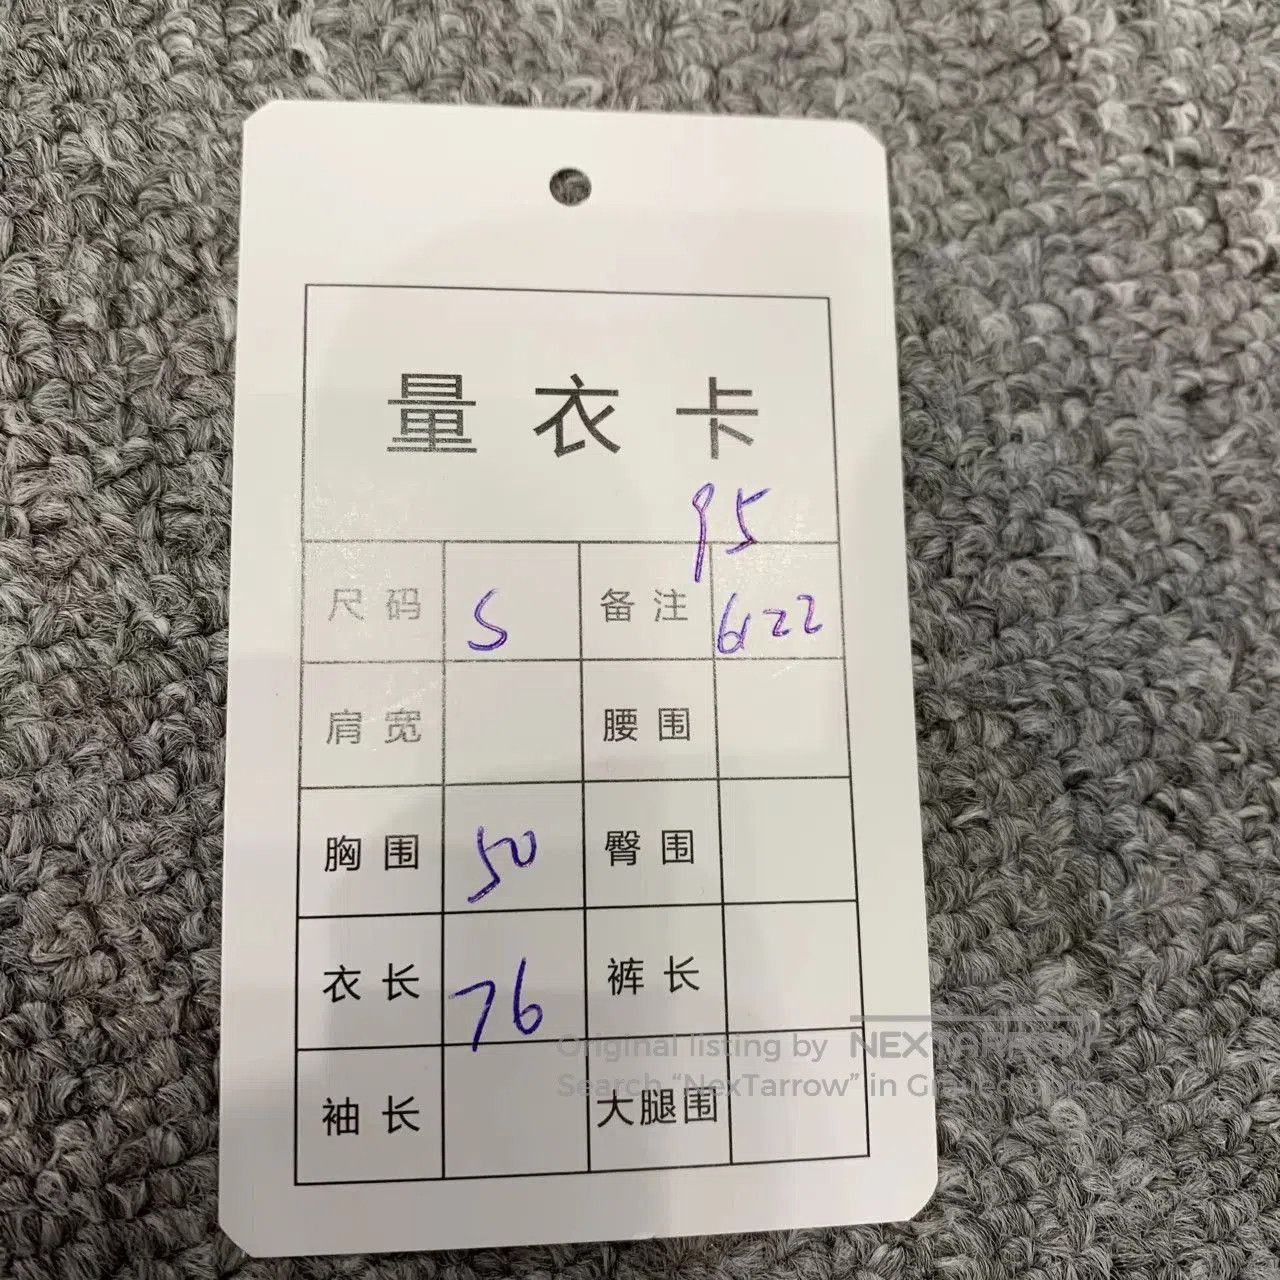 量衣卡
95
尺码 S 备注 6122
肩宽 腰围
胸围 50 臀围
衣长 76 裤长
Original listing by NEXTARROW
Search “NexTarrow” in
袖长 大腿围